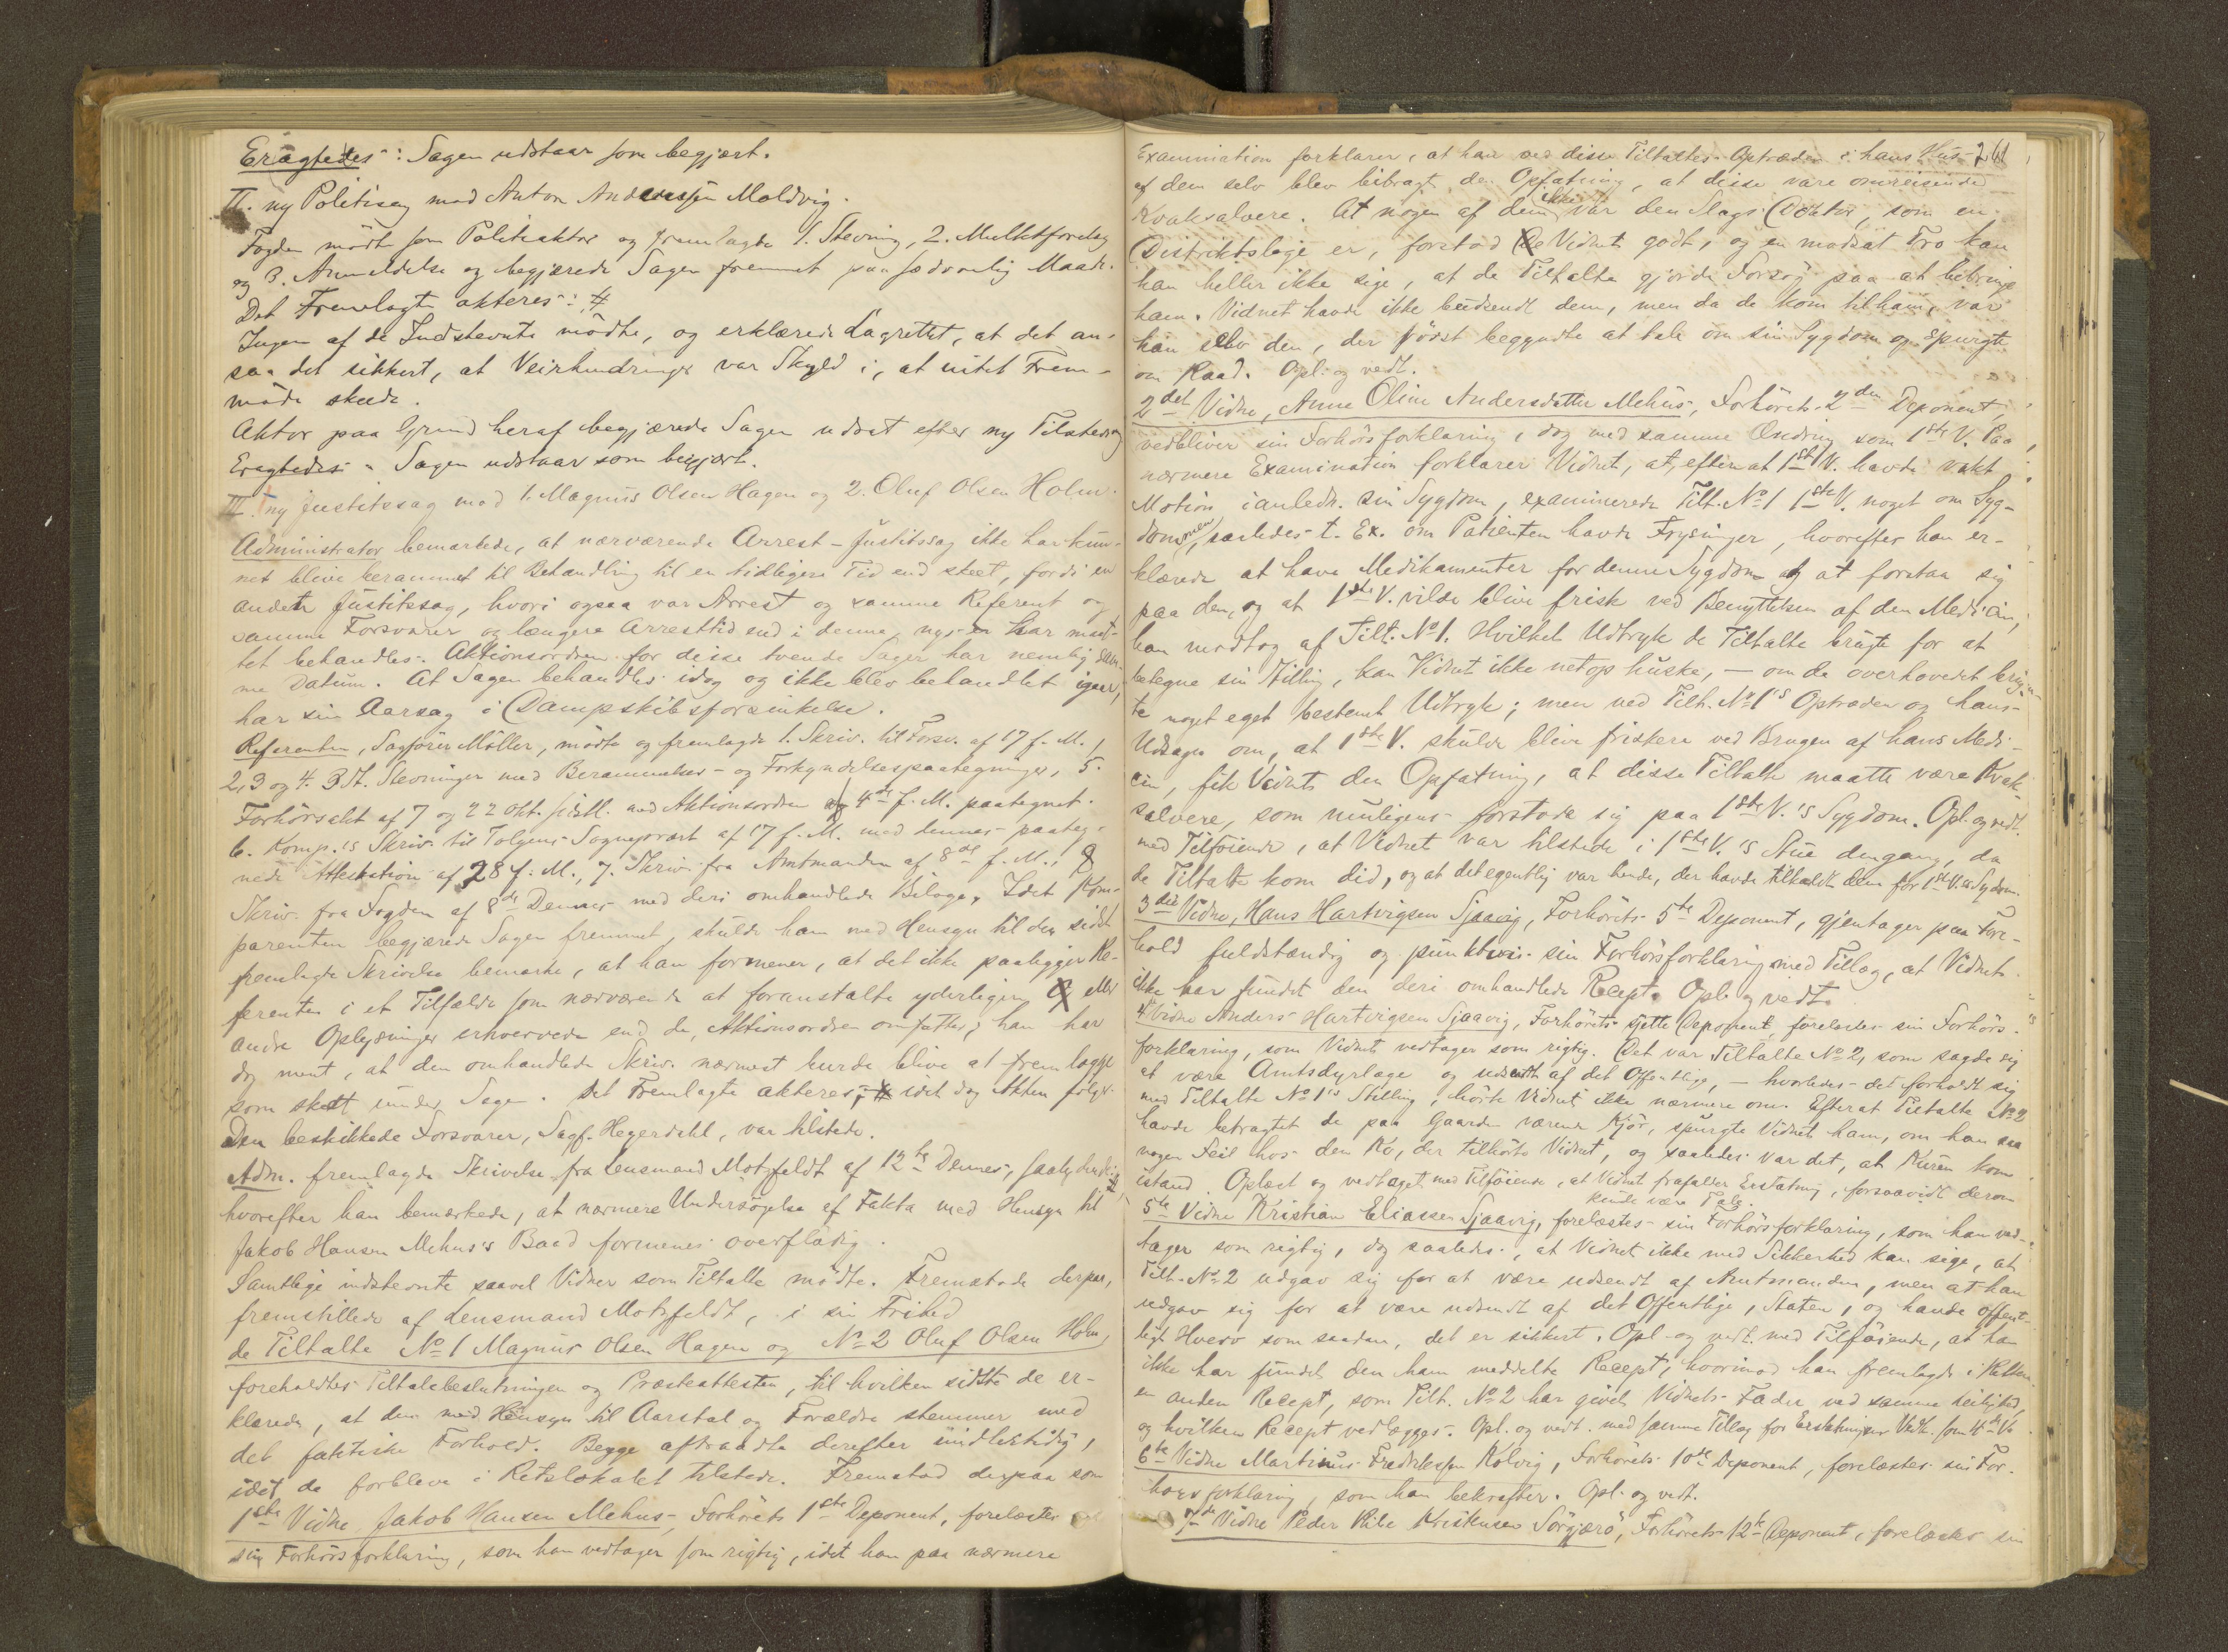 Eragtedes: Sagen udstaar som begjært.
II. ny Politisag mod Anton Anderssen Moldvig.
Fogden mödte som Politiaktor og fremlagde 1. Stevning, 2. Mulktforelæg
og 3. Anmeldelse og begjærede Sagen fremmet paa sædvanlig Maade.
Det Fremlagte akteres: #
Ingen af de Indstevnte mödte, og erklærede Lagrettet, at det an-
saa det sikkert, at Veirhindringer var Skyld i, at intet Frem-
möde skede.
Aktor paa Grund heraf begjærede Sagen udsat efter ny Tilstedes
Eragtedes: Sagen udstaar som begjært.
III. ny Justitssag mod 1. Magnus Olsen Hagen og 2. Oluf Olsen Holm.
Administrator bemærkede, at nærværende Arrest-Justitssag ikke har kun-
net blive berammet til Behandling til en tidligere Tid end skeet, fordi en
anden Justitssag, hvori ogsaa var Arrest og samme Referent og
samme Forsvarer og længere Arresttid end i denne, har maat-
tet behandles. Aktionsordren for disse tvende Sager har nemlig sam-
me Datum. At Sagen behandles idag og ikke blev behandlet igaar,
har sin Aarsag i Dampskibsforsinkelse.
Referenten, Sagförer Möller, mödte og fremlagde 1. Skriv. til Forsv. af 17 f. M.,
2, 3 og 4. 3 St. Stevninger med Berammelses- og Forkyndelsespaategninger, 5.
Forhörsakt af 7 og 22 Okt. sidstl. med Aktionsordren af 4de f. M. paategnet.
6. Komp.'s Skriv. til Tolgens Sogneprest af 17 f. M. med dennes paateg-
nede Attestation af 28 f. M., 7. Skriv. fra Amtmanden af 8de f. M., 8
Skriv. fra Fogden af 8de Dennes med deri omhandlede Bilage. Idet Kom-
parenten begjærede Sagen fremmet, skulde han med Hensyn til den sidst
fremlagte Skrivelse bemærke, at han formener, at det ikke paaligger Re-
ferenten i et Tilfælde som nærværende at foranstalte yderligere eller
andre Oplysninger erhvervede end de, Aktionsordren omfatter; han har
dog ment, at den omhandlede Skriv. nærmest burde blive at fremlægge
som skeet under Sagen. Det Fremlagte akteres, # idet dog Akten fölger.
Den beskikkede Forsvarer, Sagf. Hegerdahl, var tilstede.
Adm. fremlagde Skrivelse fra Lensmand Motzfeldt af 12te Dennes, saalydende #
hvorefter han bemærkede, at nærmere Undersögelse af Fakta med Hensyn til
Jakob Hansen Mehus's Baad formenes overflödig.
Samtlige indstevnte saavel Vidner som Tiltalte mödte. Fremstod derpaa,
fremstillede af Lensmand Motzfeldt, i sin Frihed
de Tiltalte No 1 Magnus Olsen Hagen og No 2 Oluf Olsen Holm,
foreholdtes Tiltalebeslutningen og Præsteattesten, til hvilken sidste de er-
klærede, at den med Hensyn til Aarstal og Forældre stemmer med
det faktiske Forhold. Begge aftraadte derefter midlertidig,
idet de forbleve i Retslokalet tilstede. Fremstod derpaa som
1ste Vidne Jakob Hansen Mehus, Forhörets 1ste Deponent, forelæstes
sin Forhörsforklaring, som han vedtager som rigtig, idet han paa nærmere
261
Examination forklarer, at han ved disse Tiltaltes Optræden i hans Hus
af dem selv blev bibragt den Opfatning, at disse vare omreisende
Kvaksalvere. At nogen af dem ikke var den Slags Doktor, som en
Distriktslæge er, forstod Vidnet godt, og en modsat Tro kan
han heller ikke sige, at de Tiltalte gjorde Forsög paa at bibringe
ham. Vidnet havde ikke budsendt dem, men da de kom til ham, var
han selv den, der först begyndte at tale om sin Sygdom og spurgte
om Raad. Opl. og vedt.
2det Vidne, Anne Oline Andersdatter Mehus, Forhörets 2den Deponent,
vedbliver sin Forhörsforklaring, dog med samme Ændring som 1ste V. Paa
nærmere Examination forklarer Vidnet, at, efterat 1ste V. havde vakt
Motion ianledn. sin Sygdom, examinerede Tilt. No 1 1ste V. noget om Syg-
dommen, saaledes t. Ex. om Patienten havde Frysninger, hvorefter han er-
klærede at have Medikamenter for denne Sygdom og at forstaa sig
paa den, og at 1ste V. vilde blive frisk ved Benyttelsen af den Medicin,
han modtog af Tilt. No 1. Hvilket Udtryk de Tiltalte brugte for at
betegne sin Stilling, kan Vidnet ikke netop huske, — om de overhovedet brug-
te noget eget bestemt Udtryk; men ved Tilt. No 1's Optræden og hans
Udsagn om, at 1ste V. skulde blive friskere ved Brugen af hans Medi-
cin, fik Vidnet den Opfatning, at disse Tiltalte maatte være Kvak-
salvere, som muligens forstode sig paa 1ste V.'s Sygdom. Opl. og vedt.
med Tilföiende, at Vidnet var tilstede i 1ste V.'s Stue dengang, da
de Tiltalte kom did, og at det egentlig var hende, der havde tilkaldt dem for 1ste V.s Sygdom.
3die Vidne, Hans Hartvigsen Sjaavig, Forhörets 5te Deponent, gjentager paa Fore-
hold fuldstændig og punktvis sin Forhörsforklaring med Tillæg, at Vidnet
ikke har fundet den deri omhandlede Recept. Opl. og vedt.
4de Vidne Anders Hartvigsen Sjaavig, Forhörets sjette Deponent, forelæstes sin Forhörs-
forklaring, som Vidnet vedtager som rigtig. Det var Tiltalte No 2, som sagde sig
at være Amtsdyrlæge og udsendt af det Offentlige, — hvorledes det forholdt sig
med Tiltalte No 1's Stilling, hörte Vidnet ikke nærmere om. Efterat Tiltalte No 2
havde betragtet de paa Gaarden værende Kjör, spurgte Vidnet ham, om han saa
nogen Feil hos den Ko, der tilhörte Vidnet, og saaledes var det, at Kuren kom
istand. Oplæst og vedtaget med Tilföiende, at Vidnet frafalder Erstatning, forsaavidt derom
kunde være Tale.
5te Vidne Kristian Eliassen Sjaavig, forelæstes sin Forhörsforklaring, som han ved-
tager som rigtig, dog saaledes, at Vidnet ikke med Sikkerhed kan sige, at
Tilt. No 2 udgav sig for at være udsendt af Amtmanden, men at han
udgav sig for at være udsendt af det Offentlige, Staten, og havde offent-
ligt Hverv som saadan, det er sikkert. Opl. og vedt. med Tilföiende, at han
ikke har fundet den ham meddelte Recept, hvorimod han fremlagde i Retten
en anden Recept, som Tilt. No 2 har givet Vidnets Fader ved samme Leilighed,
og hvilken Recept vedlægges. Opl. og vedt. med samme Tillæg for Erstatningens Vedk. som 4de V.
6te Vidne Martinus Fredriksen Kolvig, Forhörets 10de Deponent, forelæstes sin For-
hörsforklaring, som han bekræfter. Opl. og vedt.
7de Vidne Peder Kristensen Sörgjærö, Forhörets 12te Deponent, forelæstes sin